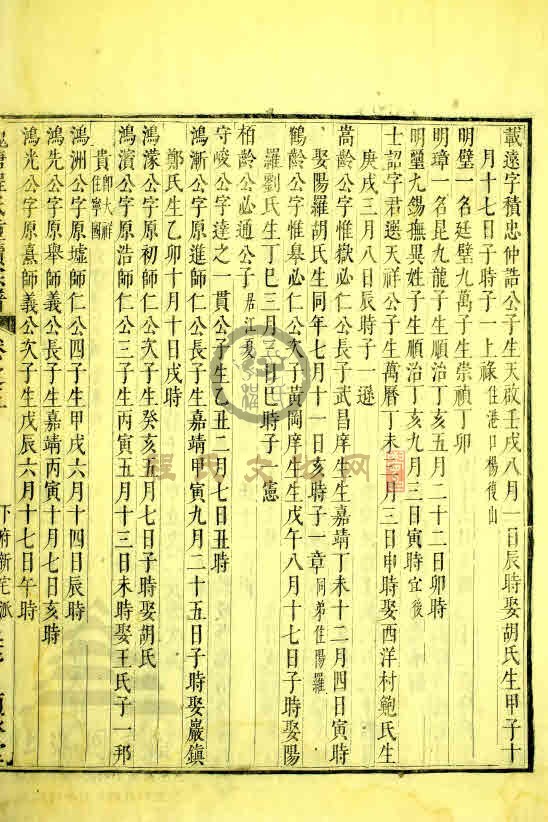 載遠字積忠仲誥公子生天啟壬戌八月一日辰時娶胡氏生甲子十
月十七日子時子一上祿住港口楊復山
明璧一名廷璧九萬子生崇禎丁卯
明璋一名昆九龍子生順治丁亥五月二十二日卯時
明璽九錫撫異姓子生順治丁亥九月三日寅時宜後
士詔字君選天祥公子生萬曆丁未二月三日申時娶西洋村鮑氏生
庚戌三月八日辰時子一遜
嵩齡公字惟嶽必仁公長子武昌庠生生嘉靖丁未十二月四日寅時
娶陽羅胡氏生同年七月十一日亥時子一章同弟住陽羅
鶴齡公字惟皋必仁公次子黃岡庠生生戊午八月十七日子時娶陽
羅劉氏生丁巳三月三日巳時子一憲
栢齡公必通公子居江夏
守峻公字達之一貫公子生乙丑二月七日丑時
鴻漸公字原進師仁公長子生嘉靖甲寅九月二十五日子時娶巖鎮
鄭氏生乙卯十月十日戌時
鴻濛公字原初師仁公次子生癸亥五月七日子時娶胡氏
鴻濱公字原浩師仁公三子生丙寅五月十三日未時娶王氏子一邦
貴即大祥住寧國
鴻洲公字原墟師仁公四子生甲戌六月十四日辰時
鴻先公字原舉師義公長子生嘉靖丙寅十月七日亥時
鴻光公字原熹師義公次子生戊辰六月十七日午時
下府新宅派
程氏文化网